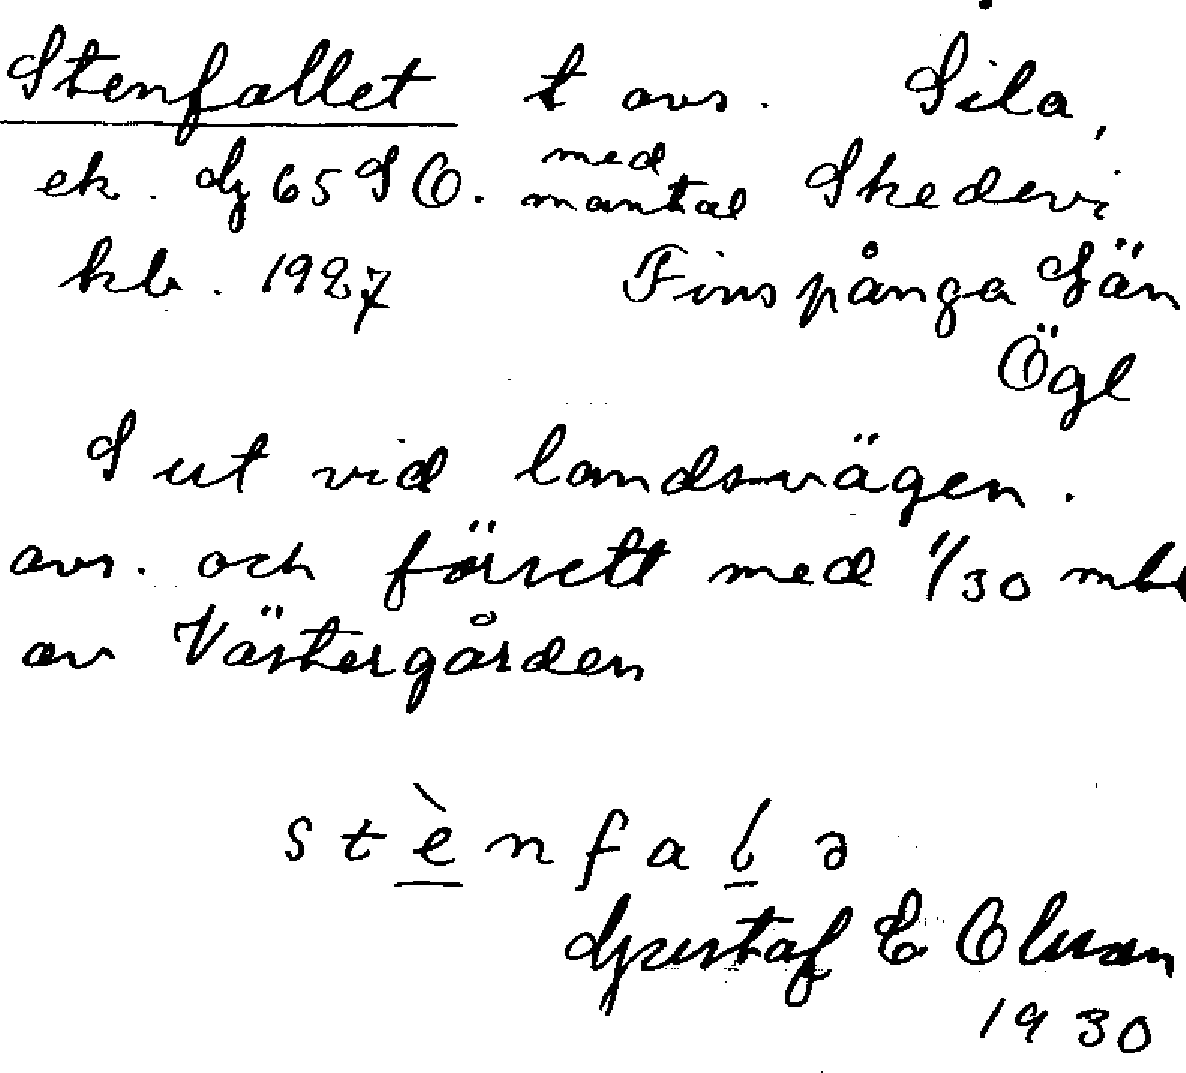 Stenfallet t avs. Sila,
ek. Bg 65 SO. med mantal Skedevi
kb. 1927 Finspånga län
Ögl
S ut vid landsvägen.
avs. och försett med 1/30 mtl
av Västergården
stènfalə
Gustaf E Olsson
1930